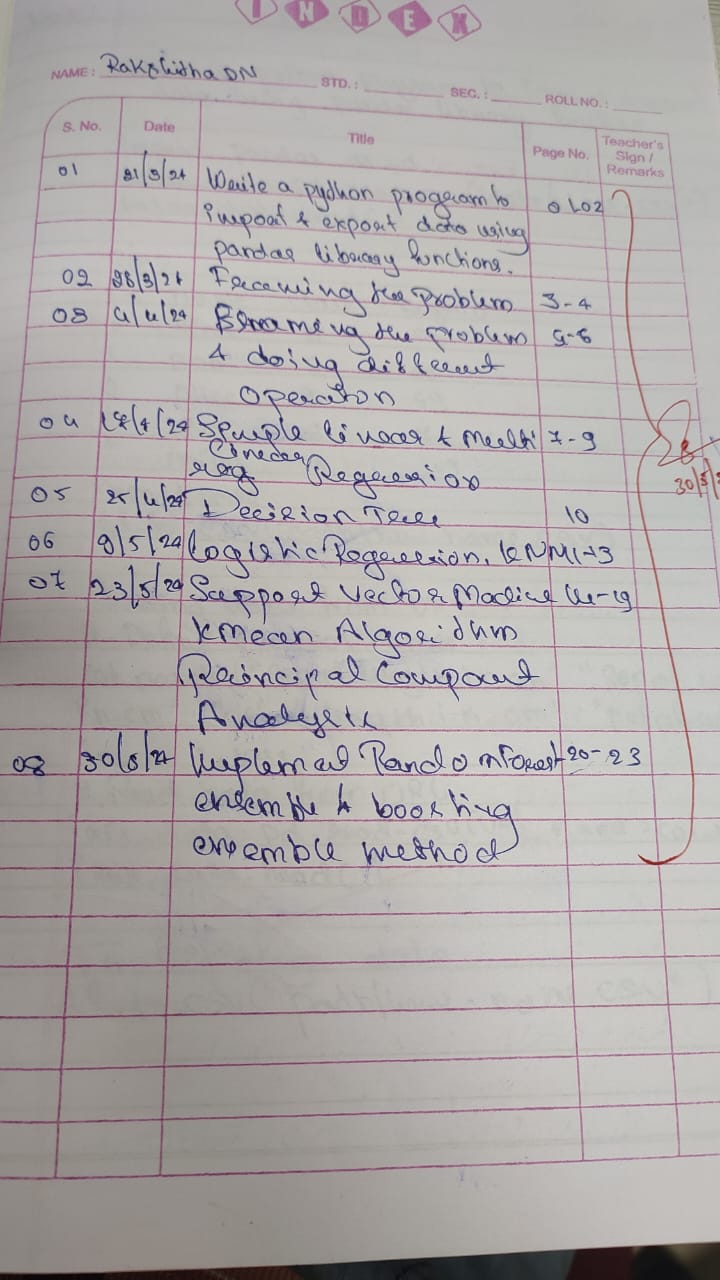 INDEX
NAME: Rakshitha DN STD.: SEC.: ROLL NO.:
S. No. Date Title Page No. Teacher's Sign / Remarks
01 21/3/24 Write a python program to 01-02
import & export data using
pandas library functions.
02 28/3/24 Framing the problem 3-4
03 4/4/24 the problem 5-6
& doing different
operation
04 18/4/24 Simple linear & Multi 7-9
Linear
Regression
05 25/4/24 Decision Tree 10
06 9/5/24 Logistic Regression, KNN 11-13
07 23/5/24 Support Vector Machine 14-19
kmean Algorithm
Principal Compount
Analysis
08 30/5/24 Implemat Random Forest 20-23
ensemble & boosting
ensemble method
30/5/